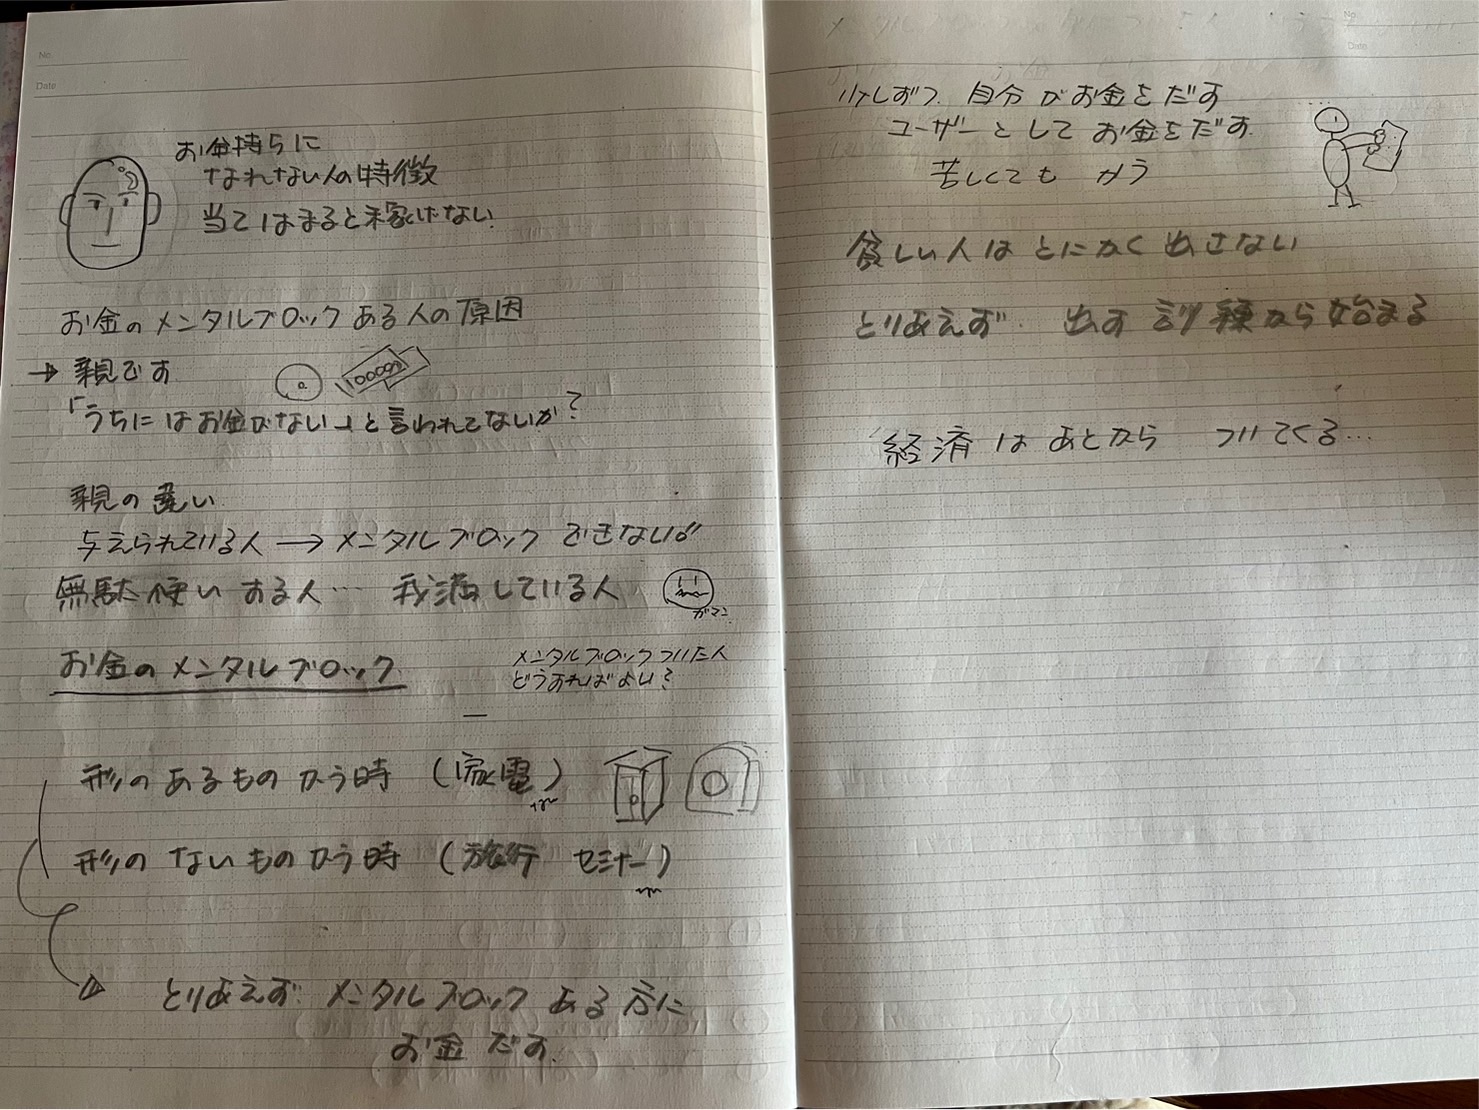 No.
Date
お金持ちに
なれない人の特徴
当てはまると稼げない
お金のメンタルブロックある人の原因
→ 親です
10000
「うちにはお金がない」と言われてないか?
親の違い
与えられている人 → メンタルブロック できない
無駄使いする人… 我満している人
ガマン
お金のメンタルブロック
メンタルブロックついた人
どうすればよい?
形のあるものかう時 (家電)
形のないものかう時 (旅行 セミナー)
とりあえず メンタルブロックある方に
お金だす
No.
Date
少しずつ 自分がお金をだす
ユーザーとしてお金をだす
苦しくても かう
貧しい人はとにかく出さない
とりあえず 出す訓練から始まる
経済はあとから ついてくる…